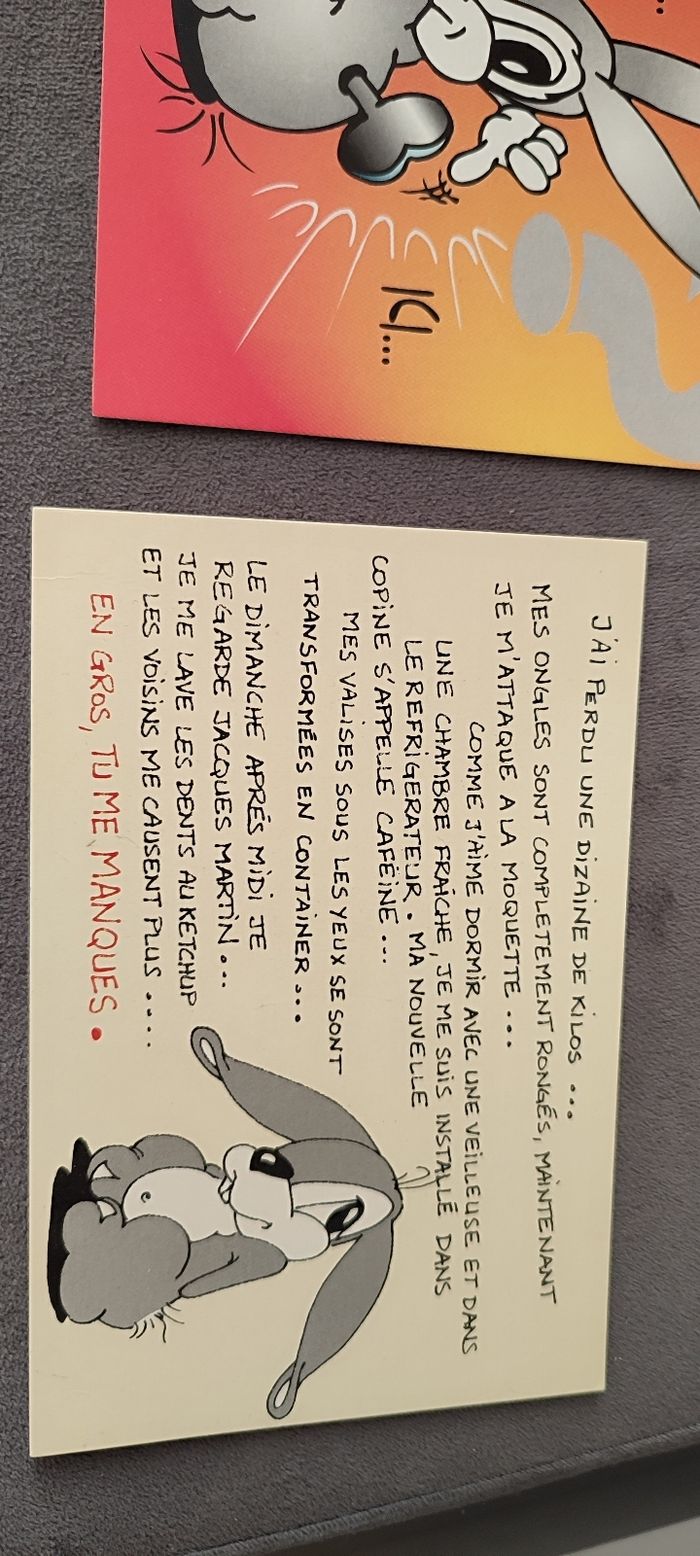 ICI...
J'AI PERDU UNE DIZAINE DE KILOS ...
MES ONGLES SONT COMPLETEMENT RONGÉS, MAINTENANT
JE M'ATTAQUE A LA MOQUETTE ...
COMME J'AIME DORMIR AVEC UNE VEILLEUSE ET DANS
UNE CHAMBRE FRAÎCHE, JE ME SUIS INSTALLÉ DANS
LE REFRIGERATEUR. MA NOUVELLE
COPINE S'APPELLE CAFÉINE ...
MES VALISES SOUS LES YEUX SE SONT
TRANSFORMÉES EN CONTAINER ...
LE DIMANCHE APRÉS MIDI JE
REGARDE JACQUES MARTIN ...
JE ME LAVE LES DENTS AU KETCHUP
ET LES VOISINS ME CAUSENT PLUS ....
EN GROS, TU ME MANQUES.